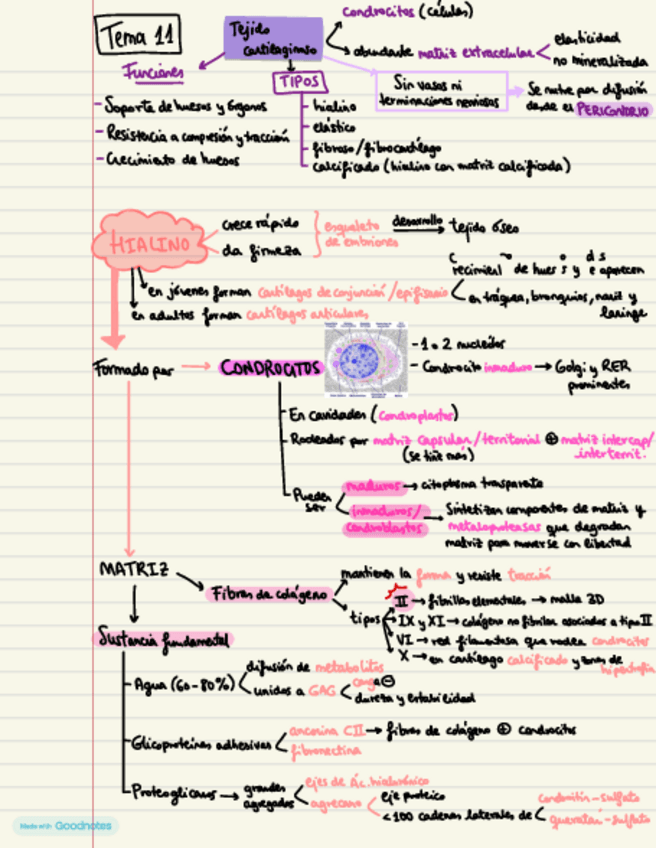 Tema 11
Tejido cartilaginoso
Condrocitos (células)
abundante matriz extracelular
elasticidad
no mineralizada
Funciones
- Soporte de huesos y órganos
- Resistencia a compresión y tracción
- Crecimiento de huesos
TIPOS
- hialino
- elástico
- fibroso/fibrocartílago
- calcificado (hialino con matriz calcificada)
Sin vasos ni
terminaciones nerviosas
Se nutre por difusión
desde el PERICONDRIO
HIALINO
crece rápido
da firmeza
esqueleto
de embriones
desarrollo
tejido óseo
en jóvenes forman cartílagos de conjunción/epifisario
en adultos forman cartílagos articulares
en tráquea, bronquios, nariz y
laringe
Formado por
CONDROCITOS
- 1 o 2 nucleólos
- Condrocito inmaduro → Golgi y RER
prominentes
En cavidades (condroplastos)
Rodeados por matriz capsular/territorial ⊕ matriz intercap/
interterrit.
(se tiñe más)
Pueden
ser
maduros → citoplasma transparente
inmaduros/
condroblastos
Sintetizan componentes de matriz y
metaloproteasas que degradan
matriz para moverse con libertad
MATRIZ
Fibras de colágeno
mantienen la forma y resiste tracción
tipos
II → fibrillas elementales → malla 3D
IX y XI → colágeno no fibrilar asociados a tipo II
VI → red filamentosa que rodea condrocitos
X → en cartílago calcificado y zonas de
hipertrofia
Sustancia fundamental
Agua (60-80%)
difusión de metabolitos
unidos a GAG
carga ⊖
dureza y estabilidad
Glicoproteínas adhesivas
ancorina CII → fibras de colágeno ⊕ condrocitos
fibronectina
Proteoglicanos → grandes
agregados
ejes de Ác. hialurónico
agrecano
eje proteico
<100 cadenas laterales de
condroitín-sulfato
queratán-sulfato
Made with Goodnotes